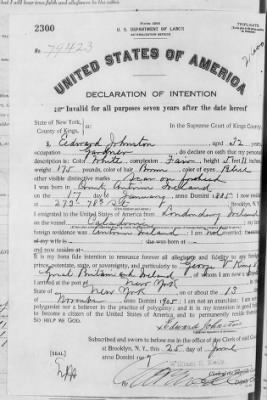 2300
Form 2203
TRIPLICATE
U. S. DEPARTMENT OF LABOR
NATURALIZATION SERVICE
No. 79423
UNITED STATES OF AMERICA
DECLARATION OF INTENTION
Invalid for all purposes seven years after the date hereof
State of New York,
County of Kings. ss: In the Supreme Court of Kings County.
I, Edward Johnston, aged 32 years,
occupation Gardener, do declare on oath that my personal
description is: Color White, complexion Fair, height 5 feet 11 inches,
weight 175 pounds, color of hair Brown, color of eyes Blue
other visible distinctive marks Scar on forehead
I was born in Antrim Ireland
on the 17 day of January, anno Domini 1885; I now reside
at 273-78 St, Brooklyn, N.Y.
I emigrated to the United States of America from Londonderry Ireland
on the vessel Caledonia; my last
foreign residence was Antrim Ireland. I am not married
; she was born at
It is my bona fide intention to renounce forever all allegiance and fidelity to any foreign
prince, potentate, state, or sovereignty, and particularly to George V King of
Great Britain and Ireland
I arrived at the port of New York, in the
State of New York, on or about the 13 day
of, anno Domini 1905; I am not an anarchist; I am not a
polygamist nor a believer in the practice of polygamy; and it is my intention in good faith
to become a citizen of the United States of America and to permanently reside therein:
SO HELP ME GOD.
Edward Johnston
Subscribed and sworn to before me in the office of the Clerk of said Court
at Brooklyn, N. Y., this 25 day of June
anno Domini 19
[SEAL]